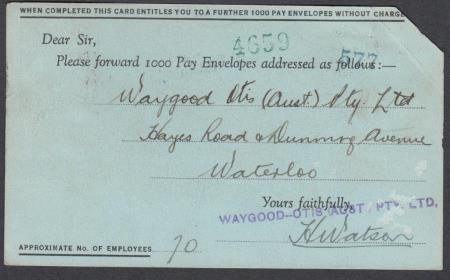 WHEN COMPLETED THIS CARD ENTITLES YOU TO A FURTHER 1000 PAY ENVELOPES WITHOUT CHARGE
Dear Sir,
4659
577
Please forward 1000 Pay Envelopes addressed as follows:—
Waygood Otis (Aust.) Pty. Ltd
Hayes Road & Dunning Avenue
Waterloo
Yours faithfully,
WAYGOOD-OTIS (AUST.) PTY. LTD.
HWatson
APPROXIMATE NO. OF EMPLOYEES 70